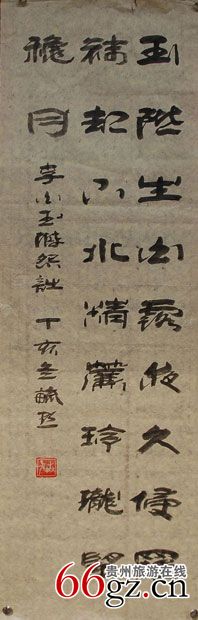 玉階生白露夜久侵羅
襪却下水精簾玲瓏望
穐月
李白玉階怨詩 丁亥冬
贵州旅游在线
66gz.cn